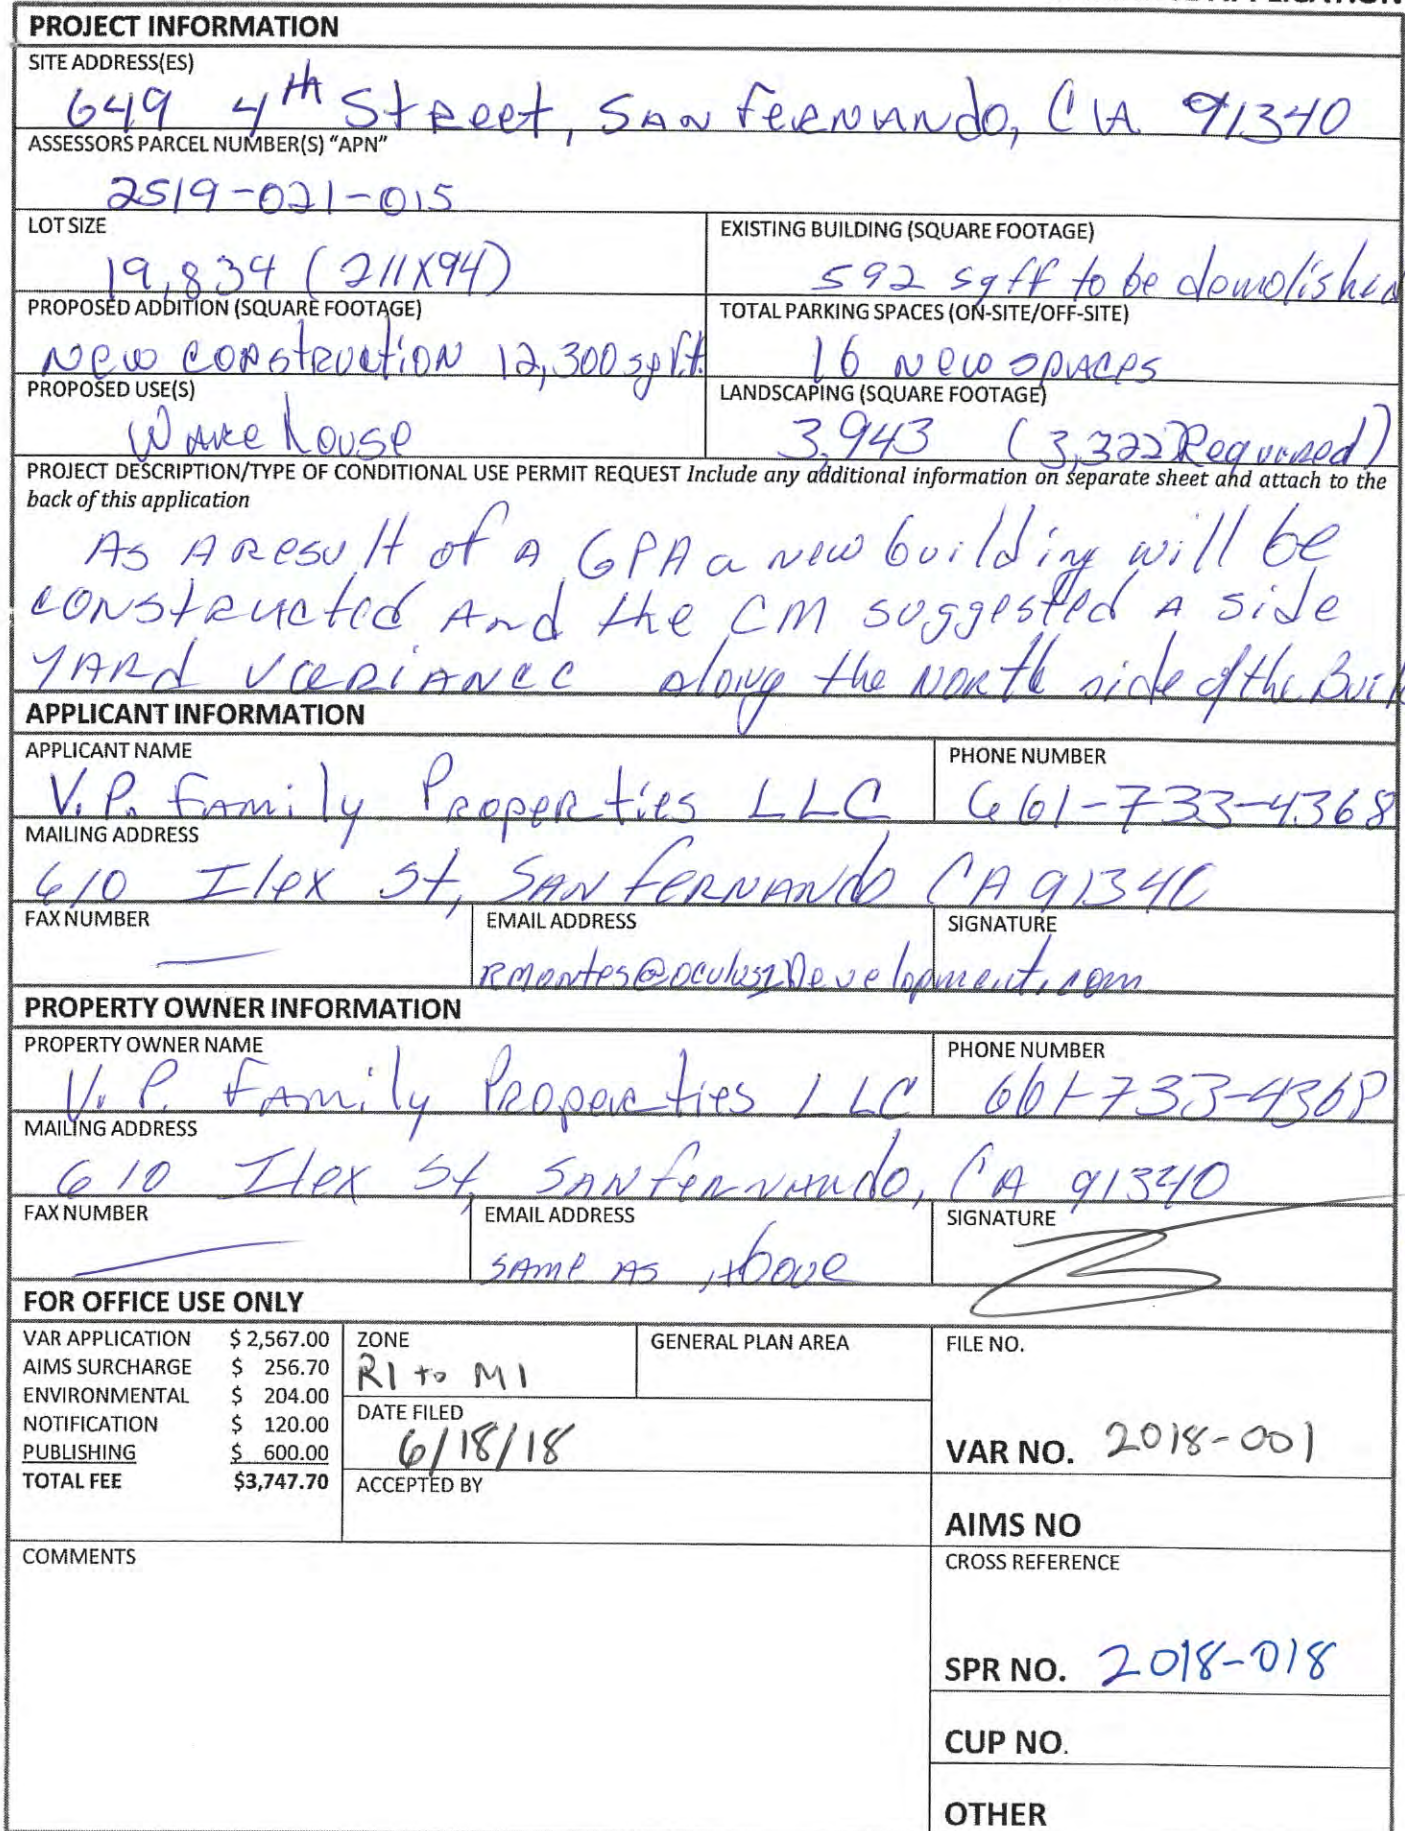 APPLICATION
PROJECT INFORMATION
SITE ADDRESS(ES)
649 4th Street, San Fernando, CA 91340
ASSESSORS PARCEL NUMBER(S) "APN"
2519-021-015
LOT SIZE
19,834 (211X94)
EXISTING BUILDING (SQUARE FOOTAGE)
592 sqft to be demolished
PROPOSED ADDITION (SQUARE FOOTAGE)
New construction 12,300 sq ft.
TOTAL PARKING SPACES (ON-SITE/OFF-SITE)
16 new spaces
PROPOSED USE(S)
Warehouse
LANDSCAPING (SQUARE FOOTAGE)
3,943 (3,322 Required)
PROJECT DESCRIPTION/TYPE OF CONDITIONAL USE PERMIT REQUEST Include any additional information on separate sheet and attach to the
back of this application
As a result of a GPA a new building will be
constructed and the CM suggested a side
yard variance along the north side of the Buil
APPLICANT INFORMATION
APPLICANT NAME
V.P. Family Properties LLC
PHONE NUMBER
661-733-4368
MAILING ADDRESS
610 Ilex St, San Fernando CA 91340
FAX NUMBER
—
EMAIL ADDRESS
rmontes@oculus1Development.com
SIGNATURE
PROPERTY OWNER INFORMATION
PROPERTY OWNER NAME
V.P. Family Properties LLC
PHONE NUMBER
661-733-4368
MAILING ADDRESS
610 Ilex St, San Fernando, CA 91340
FAX NUMBER
—
EMAIL ADDRESS
same as above
SIGNATURE
FOR OFFICE USE ONLY
VAR APPLICATION $ 2,567.00
AIMS SURCHARGE $ 256.70
ENVIRONMENTAL $ 204.00
NOTIFICATION $ 120.00
PUBLISHING $ 600.00
TOTAL FEE $3,747.70
ZONE
R1 to M1
GENERAL PLAN AREA
DATE FILED
6/18/18
ACCEPTED BY
FILE NO.
VAR NO. 2018-001
AIMS NO
COMMENTS
CROSS REFERENCE
SPR NO. 2018-018
CUP NO.
OTHER